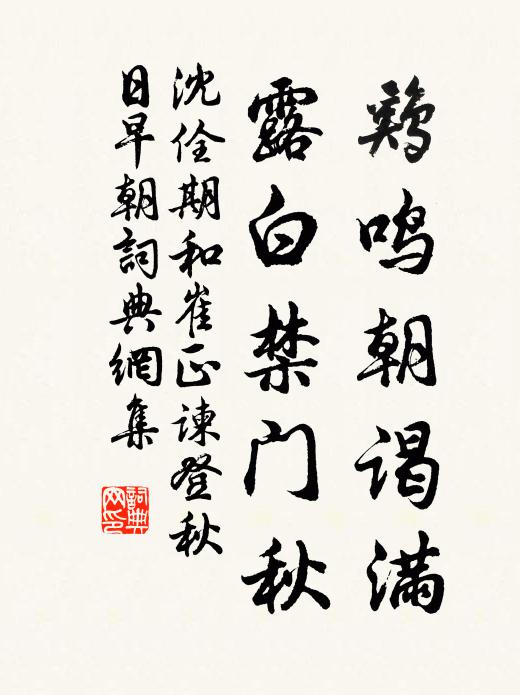 鷄鸣朝谒满
露白禁门秋
沈佺期和崔正谏登秋
日早朝詞典網集
詞典网印